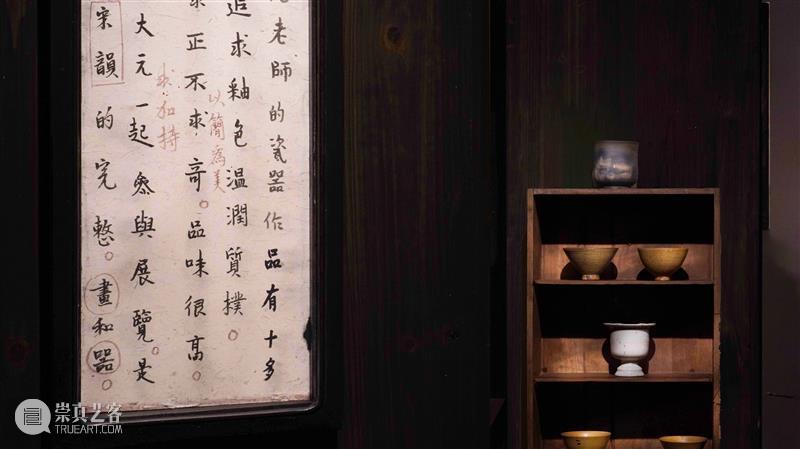 老師的瓷器作品有十多
追求釉色温潤質樸。
以簡爲美
求正不求奇。品味很高。
求加持
大元一起參與展覽。是
宋韻的完整。畫和器。
崇真艺客
TRUEART.COM